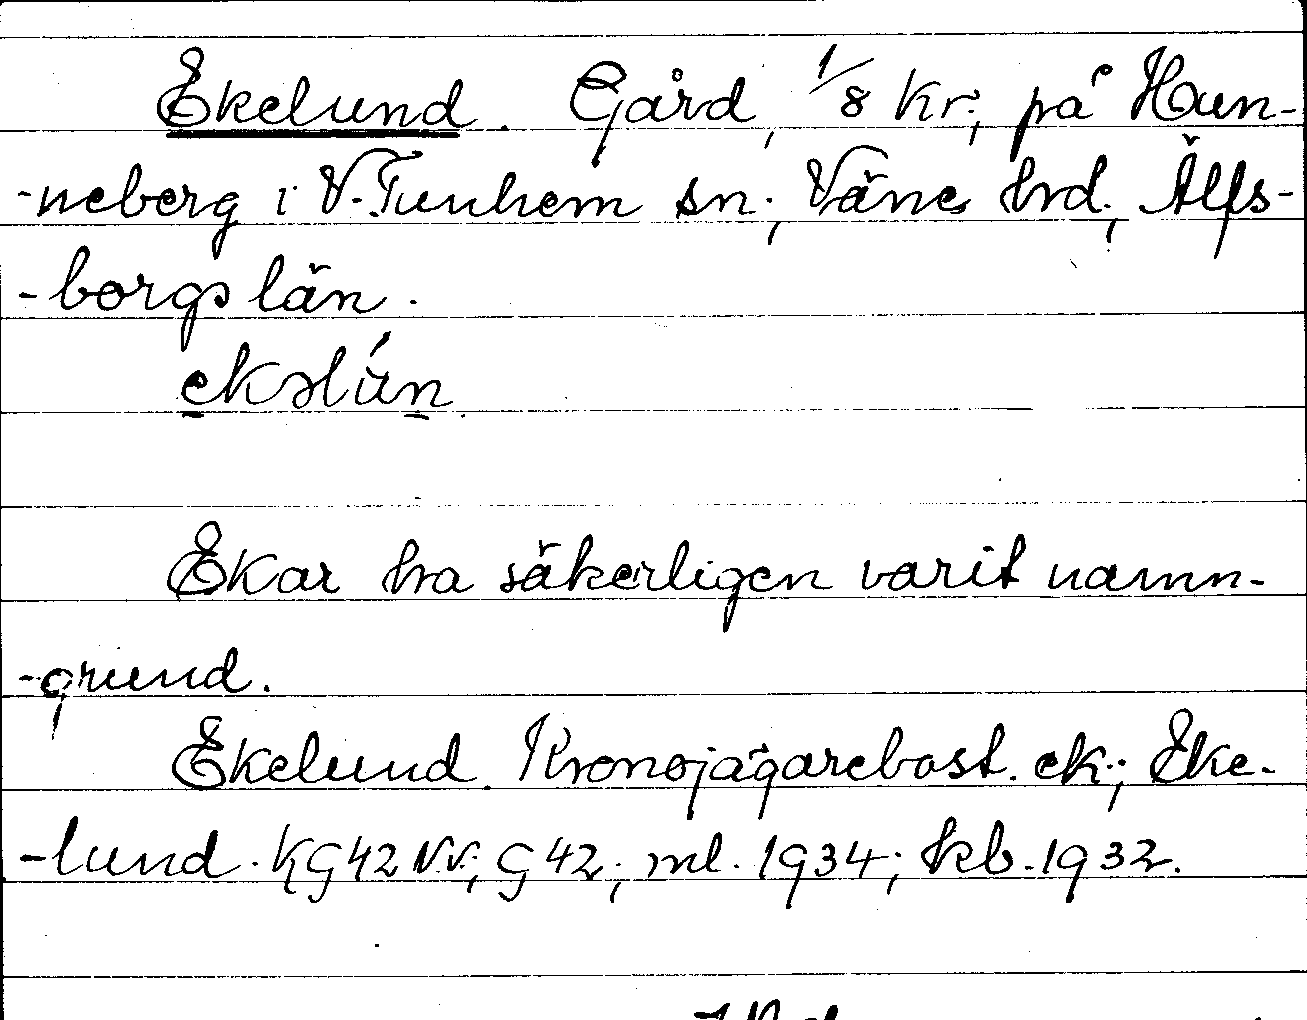 Ekelund. Gård, 1/8 kr., på Hun-
-neberg i V. Tunhem sn., Väne hrd., Älfs-
-borgs län.
ekəlún
Ekar ha säkerligen varit namn-
-grund.
Ekelund. Kronojägarebost. ek.; Eke-
-lund. KG42 N.V.; G42; ml. 1934; kb. 1932.